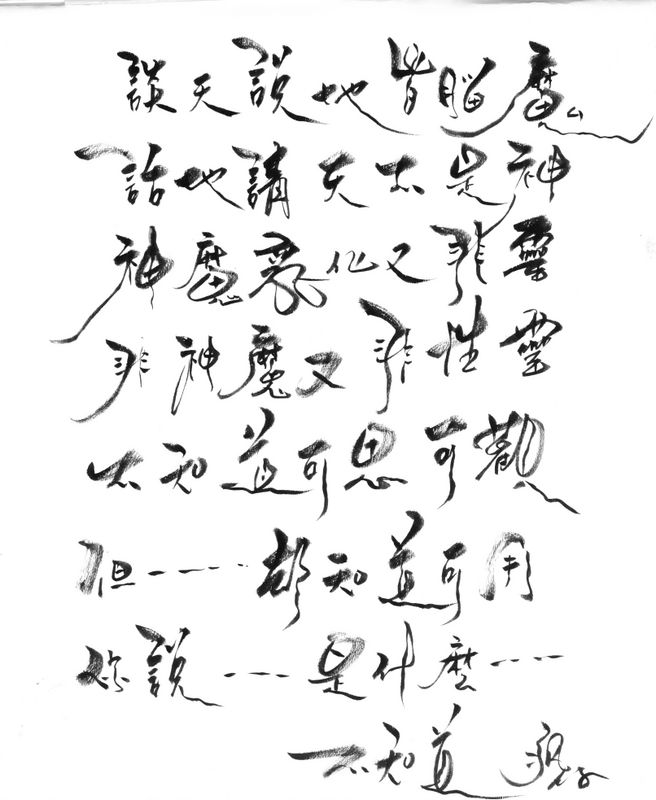 談天說地皆腦魔
話地請天不是神
神魔裹化又非靈
非神魔又非性靈
不知道可思可觀
但----都知道可用
你說---是什麼----
不知道